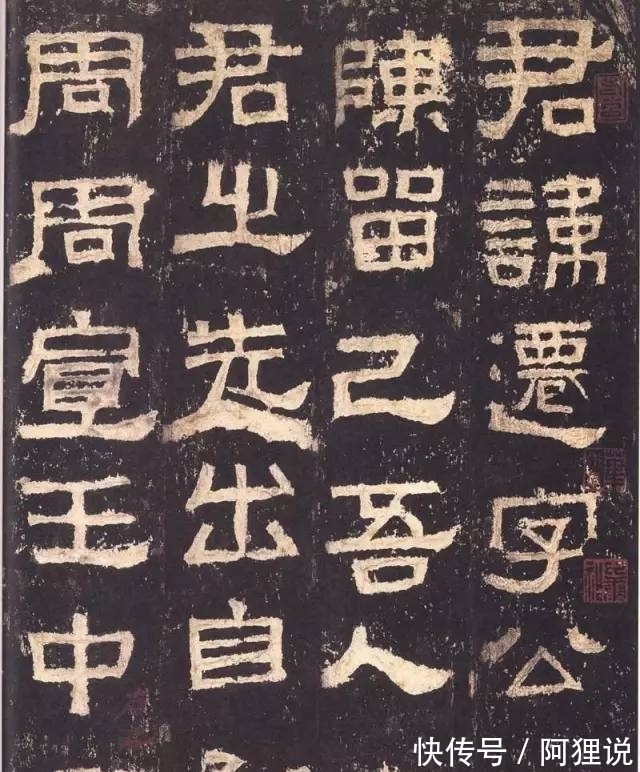 君諱遷字公
陳留己吾人
君之先出自
周周宣王中
快传号 / 阿狸说